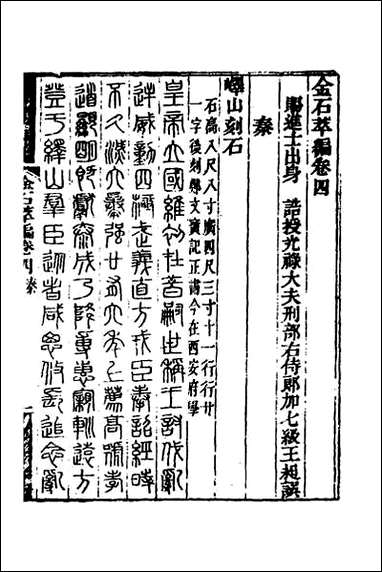 金石萃編卷四
賜進士出身 誥授光祿大夫刑部右侍郎加七級王昶譔
秦
嶧山刻石
石高八尺八寸廣四尺三寸十一行行廿
一字後刻鄭文寶記正書今在西安府學
皇帝立國維初在昔嗣世稱王討伐亂
逆威動四極武義直方戎臣奉詔經時
不久滅六暴強廿有六年上薦高號孝
道顯明既獻泰成乃降專惠親䡅遠方
登于繹山群臣從者咸思攸長追念亂
金石萃編卷四 秦
一